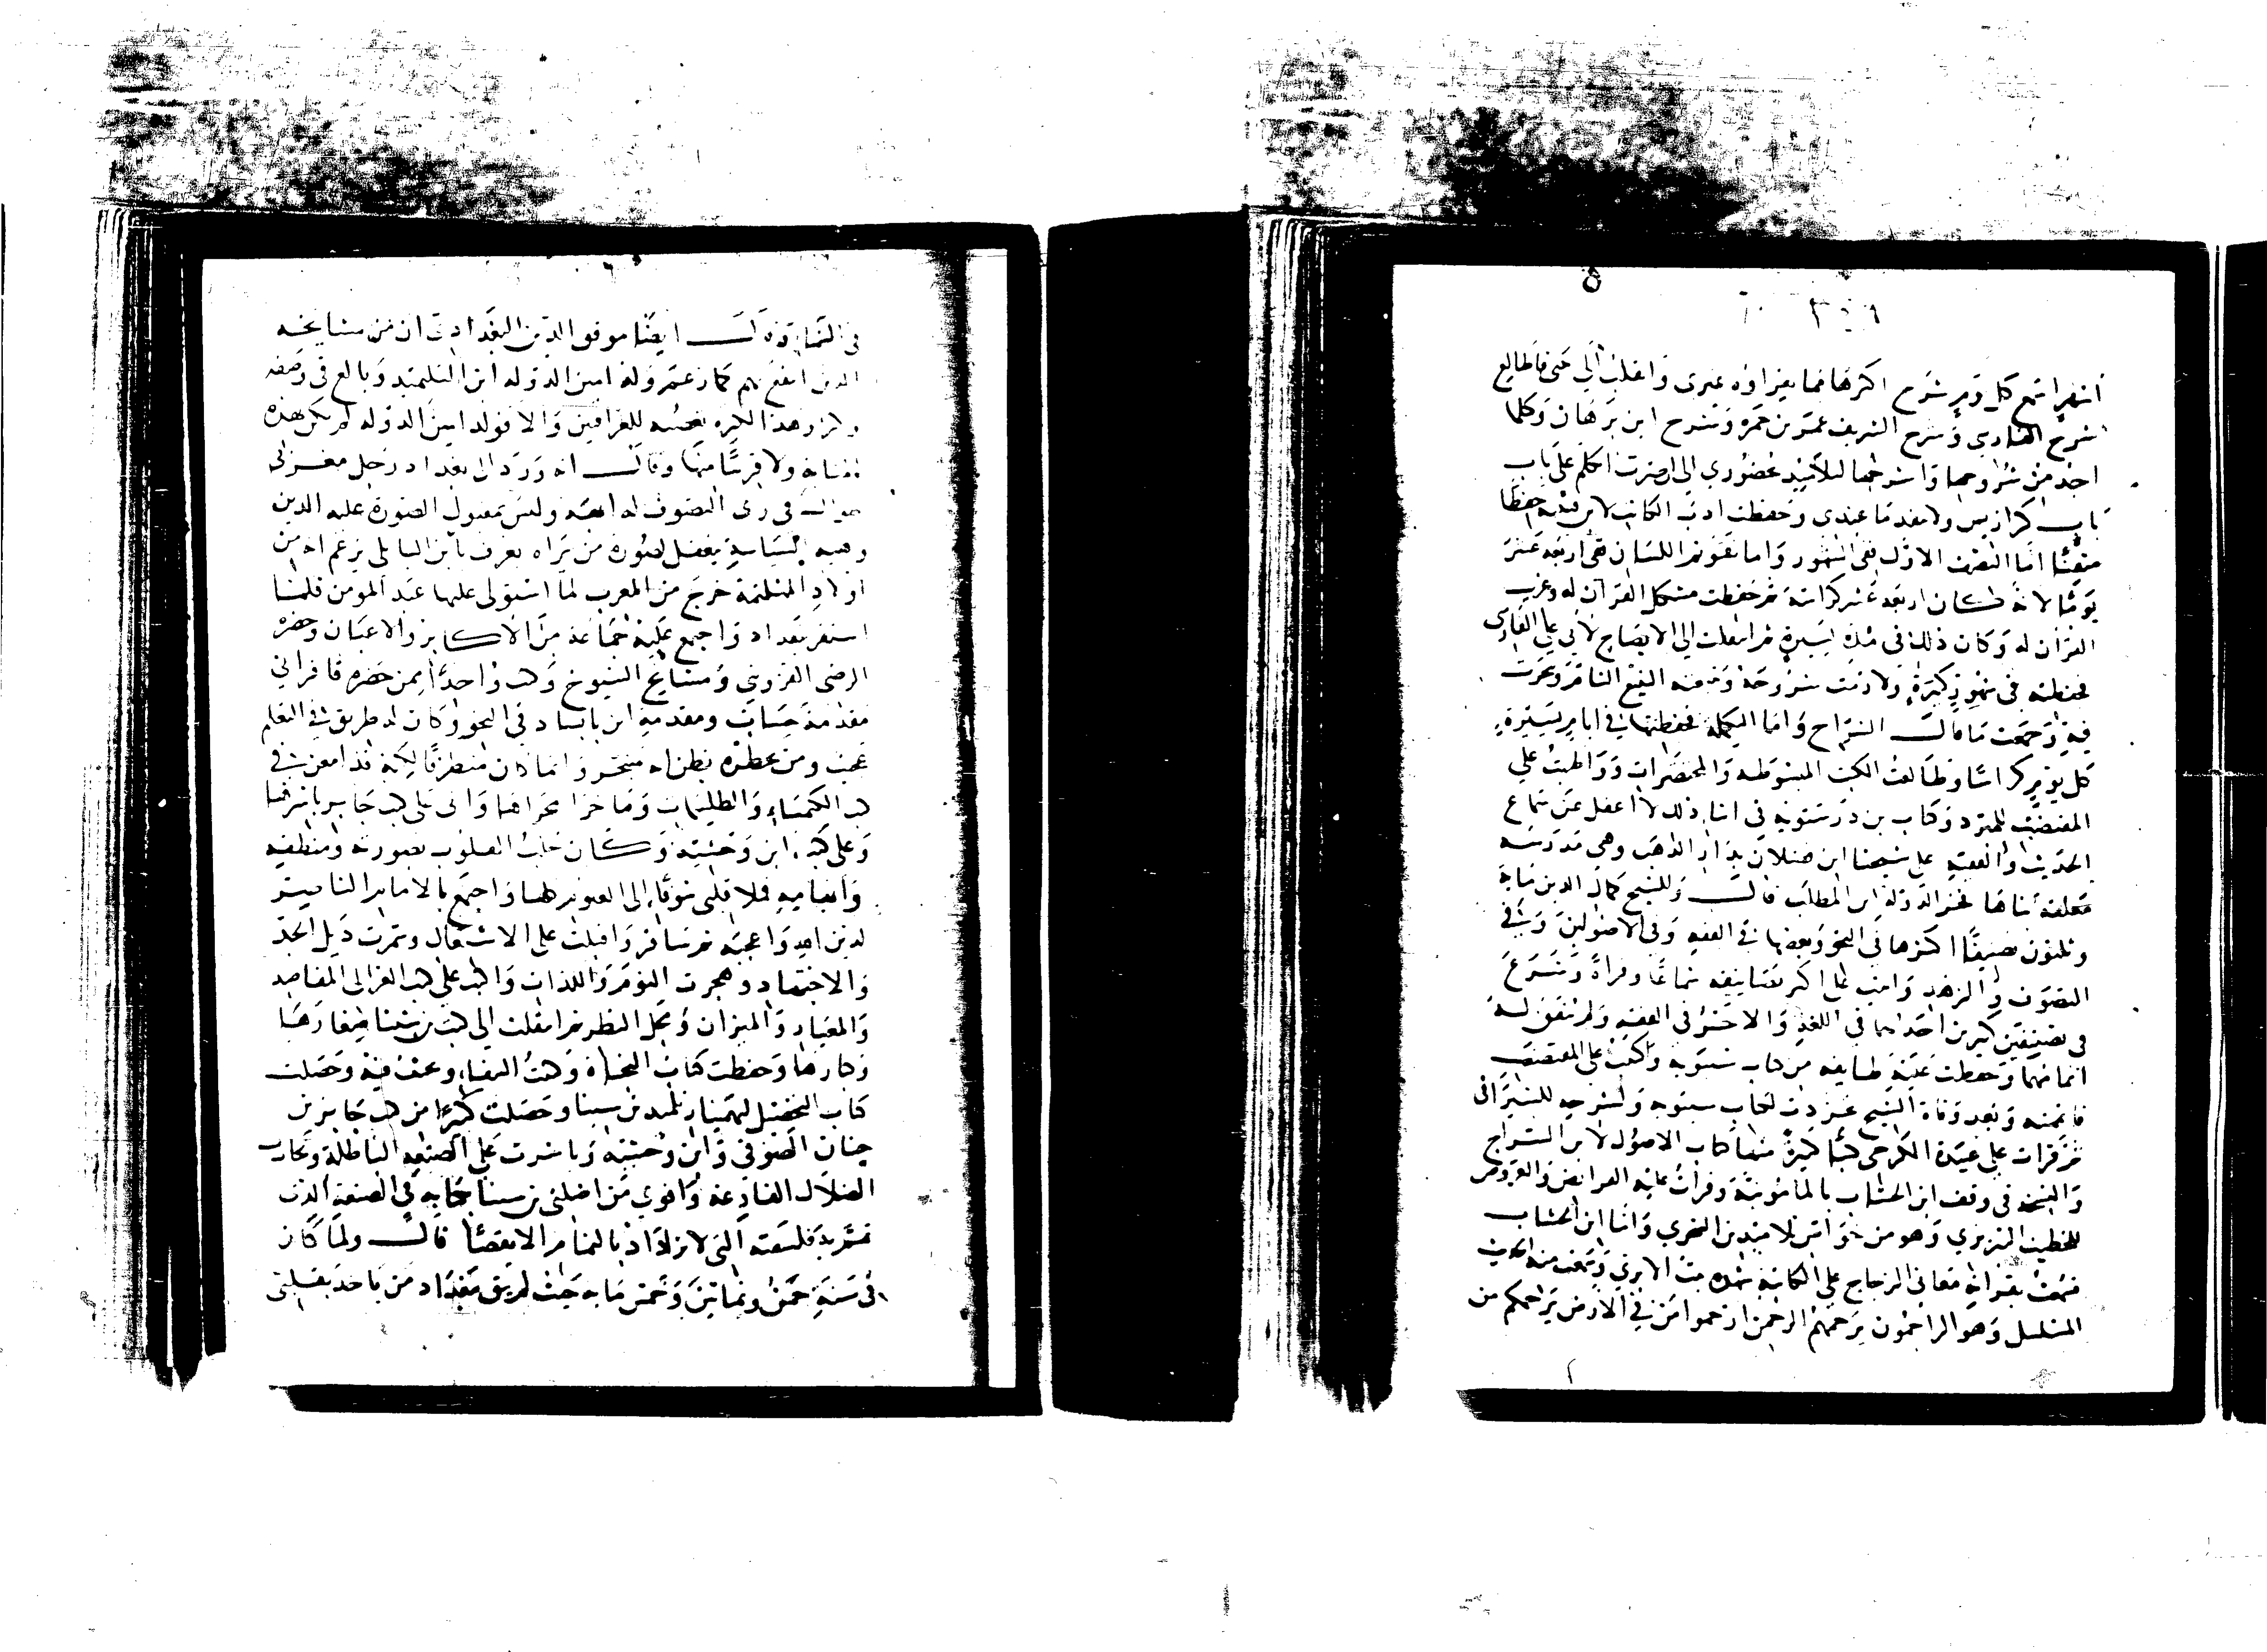 اشهر اسمع كل يوم شرح اكثرها مما يقراوه غيرى وانقلب الى حتى فاطالع
شرح الثمانينى وشرح الشريف عمر بن حمزه وشرح ابن برهان وكلما
اجد من شروحها واشرحها لتلاميذ يختصون بى الى ان صرت اتكلم على كل باب
كراريس ولا ينفد ما عندى وحفظت ادب الكاتب لابن قتيبه حفظا
متقنا اما النصف الاول ففى شهور واما تقويم اللسان ففى اربعه عشر
يوما لانه كان اربعه عشر كراسة ثم حفظت مشكل القران له وغريب
القران له وكان ذلك فى مدة يسيرة ثم انتقلت الى الايضاح لابى على الفارسى
فحفظته فى شهور كثيرة ولازمت شروحه وتتبعته التتبع التام حتى تبحرت
فيه وجمعت ما قال الشراح واما التكمله فحفظتها فى ايام يسيرة
كل يوم كراسا وطالعت الكتب المبسوطه والمختصرات وواظبت على
المقتضب للمبرد وكتاب بن درستويه وفى اثناء ذلك لا اغفل عن سماع
الحديث والفقه على شيخنا ابن فضلان بدار الذهب وهى مدرسه
معلقة بناها فخر الدولة ابن المطلب قال وللشيخ كمال الدين مايه
وثلثون تصنيفا اكثرها فى النحو وبعضها فى الفقه وفى الاصولين وفى
التصوف والزهد واتيت على اكثر تصانيفه سماعا وقراءة وشرع
فى تصنيفين كبيرين احدهما فى اللغة والاخر فى الفقه ولم يتفق له
اتمامهما وحفظت عليه طايفه من كتاب سيبويه واكببت على المقتضب
فاتقنته وبعد وفاة الشيخ تجردت لكتاب سيبويه ولشرحه للسيرافى
ثم قرات على ابن عبيدة الكرخى كتبا كثيرة منها كتاب الاصول لابن السراج
والنسخه فى وقف ابن الخشاب بالمامونية وقرات عليه الفرايض والعروض
للخطيب التبريزى وهو من خواص تلاميذ بن الشجرى واما ابن الخشاب
فسمعت بقراته معانى الزجاج على الكاتبة شهده بنت الابرى وسمعت منه الحديث
المسلسل وهو الراحمون يرحمهم الرحمن ارحموا من فى الارض يرحمكم من
فى السما وقال ايضا موفق الدين البغدادى ان من مشايخه
الذين انتفع بهم كما زعم ولد امين الدوله ابن التلميذ وبالغ فى وصفه
وكثر وهذا لكثره تعصبه للعراقيين والا فولد امين الدوله لم يكن بهذه
المثابه ولا قريبا منها وقال انه ورد الى بغداد رجل مغربى
جوال فى زى التصوف له ابهه ولسن مقبول الصورة عليه الدين
وهيه السياسة ينفعل لصورته من يراه يعرف بابن النايلى يزعم انه من
اولاد المتلثمة خرج من المغرب لما استولى عليها عبد المومن فلما
استقر ببغداد واجتمع عليه جماعة من الاكابر والاعيان وحضره
الرضى القزوينى ومشايخ الشيوخ وكنت واحدا ممن حضره فاقرانى
مقدمة حساب ومقدمة ابن بابشاد فى النحو وكان له طريق فى التعليم
عجيب ومن يحضره يظن انه متبحر وانما كان متطرفا لكنه قد امعن فى
كتب الكيمياء والطلسمات وما جرا مجراها واتى على كتب جابر باسرها
وعلى كتب ابن وحشيه وكان يجلب القلوب بصورته ومنطقه
وايهامه فملا قلبى شوقا الى العلوم كلها واجتمع بالامام الناصر
لدين الله واعجبه ثم سافر واقبلت على الاشتغال وشمرت ذيل الجد
والاجتهاد وهجرت النوم واللذات واكببت على كتب الغزالى المقاصد
والمعيار والميزان ومحك النظر ثم انتقلت الى كتب بن سينا صغارها
وكبارها وحفظت كتاب النجاة وكتبت الشفاء وبحثت فيه وحصلت
كتاب التحصيل لبهمنيار تلميذ بن سينا وحصلت كثيرا من كتب جابر بن
حيان الصوفى وابن وحشيه وباشرت عمل الصنعه الباطلة وتجارب
الضلال الفارغه واقوى من اضلنى بن سينا بكتابه فى الصنعة الذى
تمم به فلسفته التى لا تزداد بالتمام الا نقصا قال ولما كان
فى سنة خمس وثمانين وخمس مايه حيث لم يبق ببغداد من ياخذ بقلبى